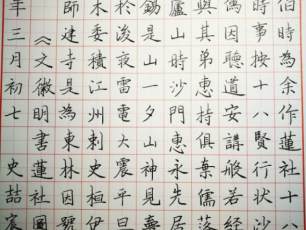 伯時為余作蓮社十八
時事按十八賢行狀沙
因聽道安講般若經
與其弟惠持俱棄儒落
廬山時沙門惠永先居
錫是山一夕山神見
後夜雷電大震平旦
木委積江州刺史桓伊
師建寺是為東林因號
《文徵明書蓮社圖
年三月初七 史喆宸